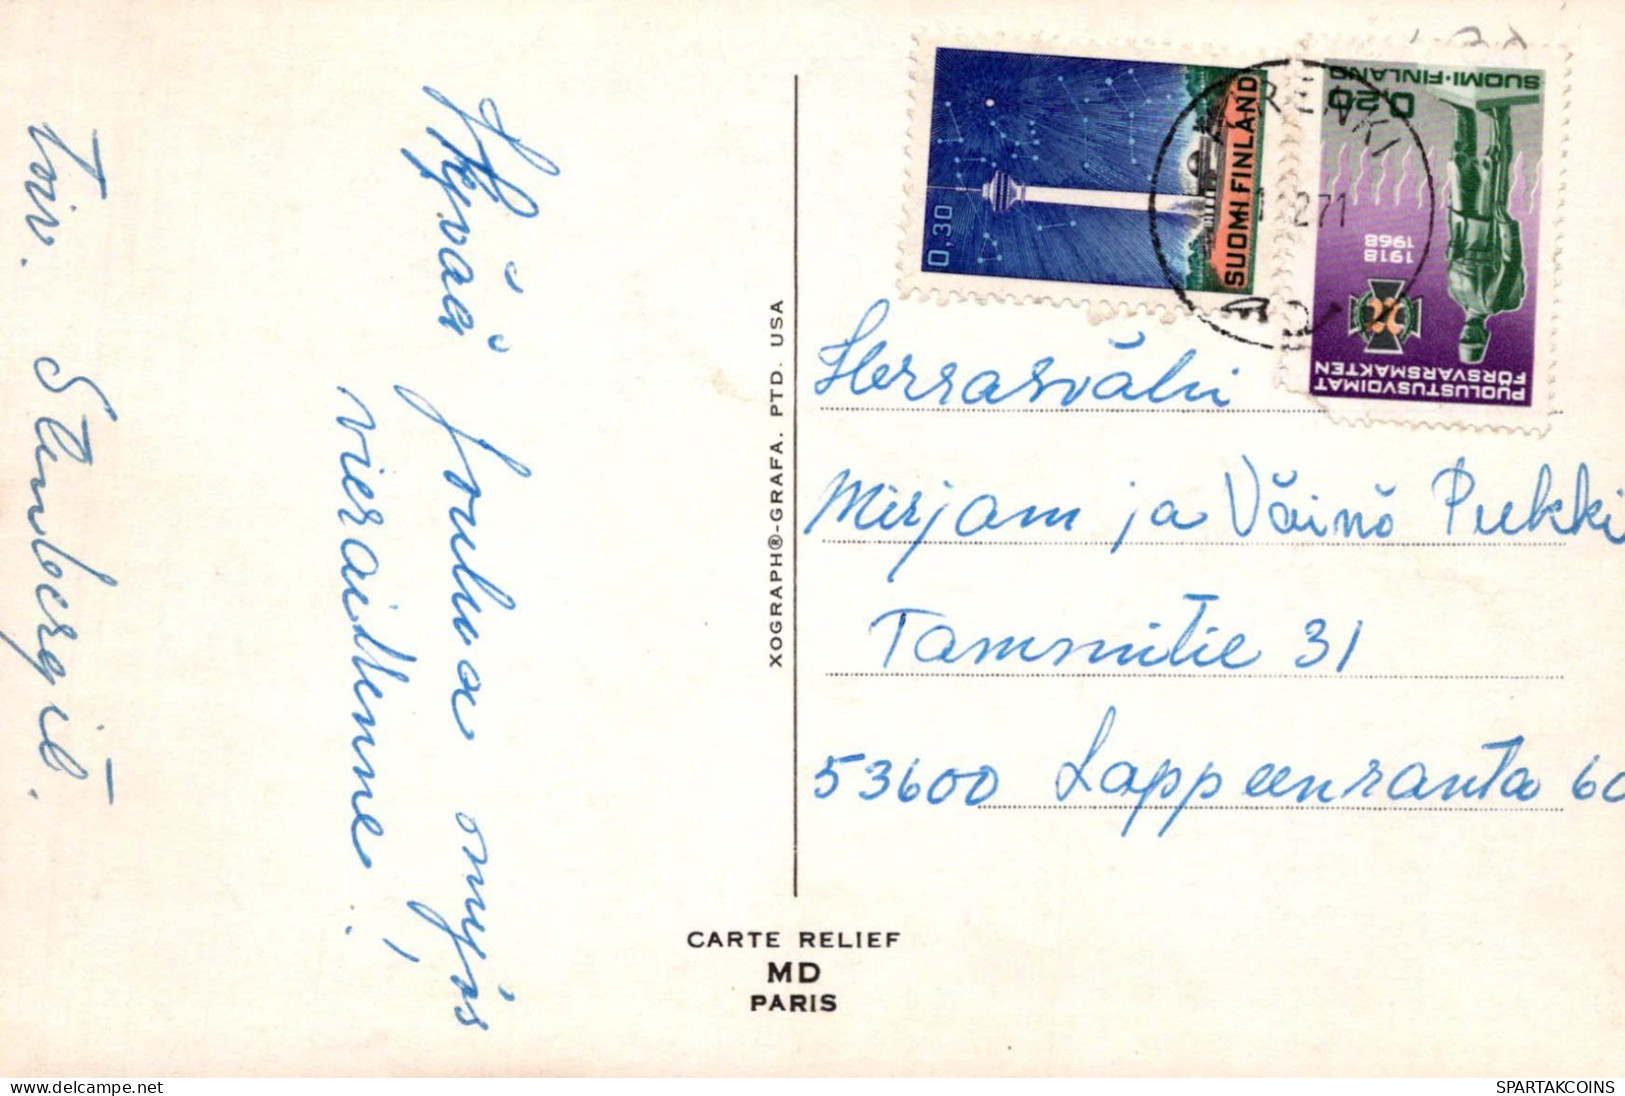 Hyvää Joulua myös
vieraillenne!
Toiv. Stenbergit.
XOGRAPH®-GRAFA. PTD. USA
CARTE RELIEF
MD
PARIS
0,30
SUOMI FINLAND
SUOMI-FINLAND
0,20
1918
1968
PUOLUSTUSVOIMAT
FÖRSVARSMAKTEN
271
Herrasväki
Mirjam ja Väinö Pukki
Tammitie 31
53600 Lappeenranta 60
delcampe.net
SPARTAKCOINS